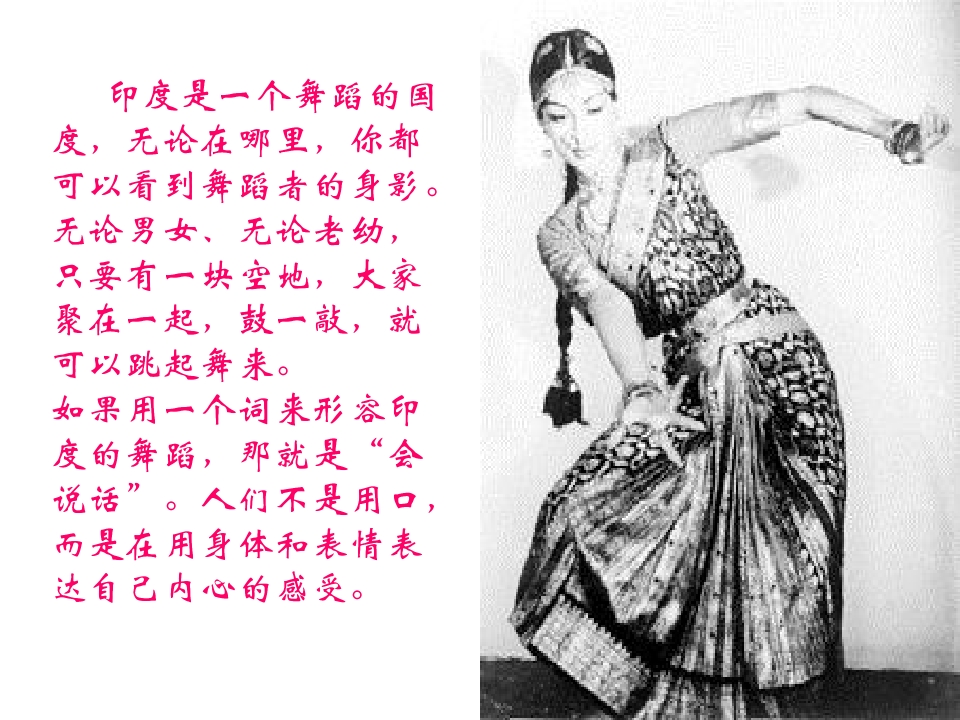 印度是一个舞蹈的国
度，无论在哪里，你都
可以看到舞蹈者的身影。
无论男女、无论老幼，
只要有一块空地，大家
聚在一起，鼓一敲，就
可以跳起舞来。
如果用一个词来形容印
度的舞蹈，那就是“会
说话”。人们不是用口，
而是在用身体和表情表
达自己内心的感受。